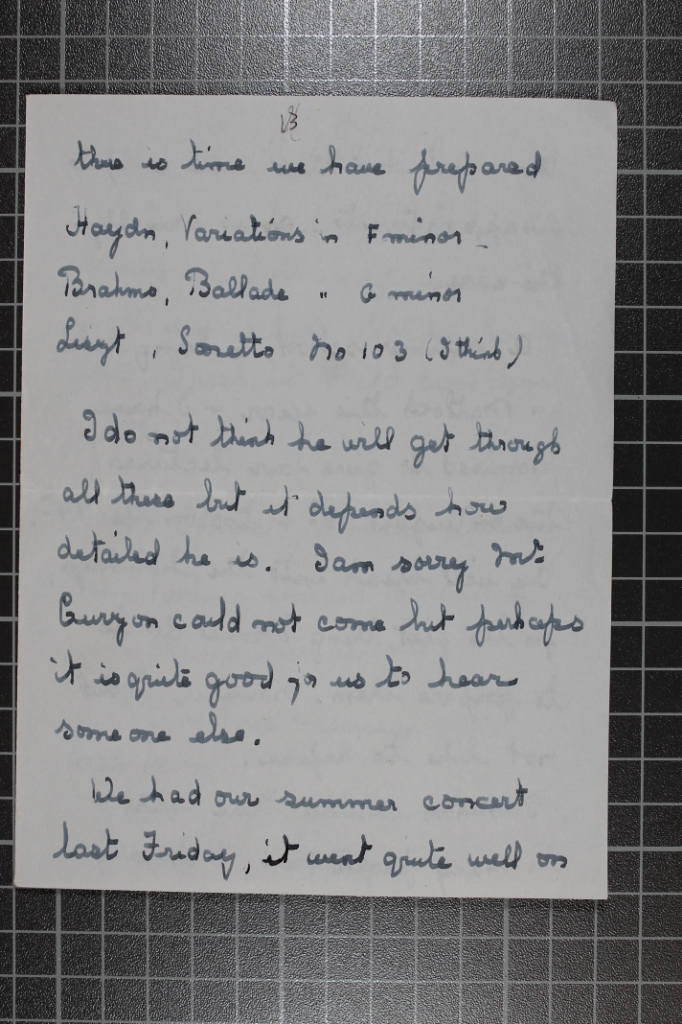 3
there is time we have prepared
Haydn, Variations in F minor
Brahms, Ballade " G minor
Liszt, Sonetto No 103 (I think)
I do not think he will get through
all these but it depends how
detailed he is. I am sorry Mr
Curzon could not come but perhaps
it is quite good for us to hear
someone else.
We had our summer concert
last Friday, it went quite well on